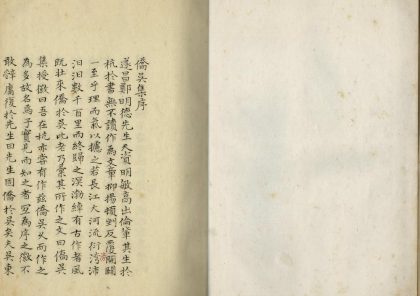 僑吳集序
遂昌鄭明德先生天資明敏高出倫輩其生於
杭於書無不讀作為文章抑揚頓剉反覆開闔
一至乎理而氣以攄之若長江大河流衍滂沛
汨汨數千百里而終歸之溟渤綽有古作者風
既壯來僑於吳此老乃彙其所作之文曰僑吳
集授徵曰吾在杭亦嘗有作茲僑吳久而作之
為多故名焉子實見而知之者宜為序之徵不
敢辭屬復於先生曰先生固僑於吳矣夫吳東